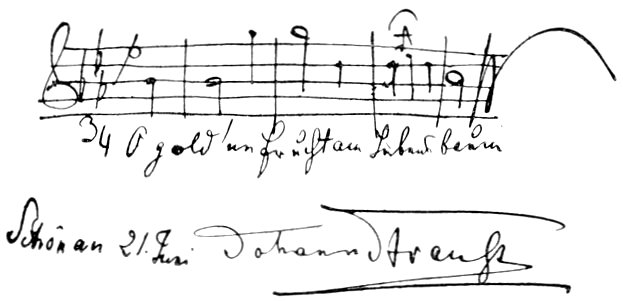 3/4 O gold'ne Frucht am Lebensbaum
Schönau 21. Juni Johann Strauss